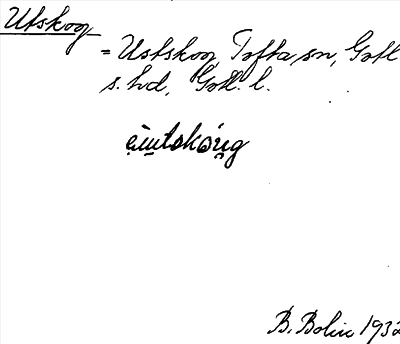 Utskog
= Utskog, Tofta, sn, Gotl
s. hd, Gotl. l.
B. Bolin 1932